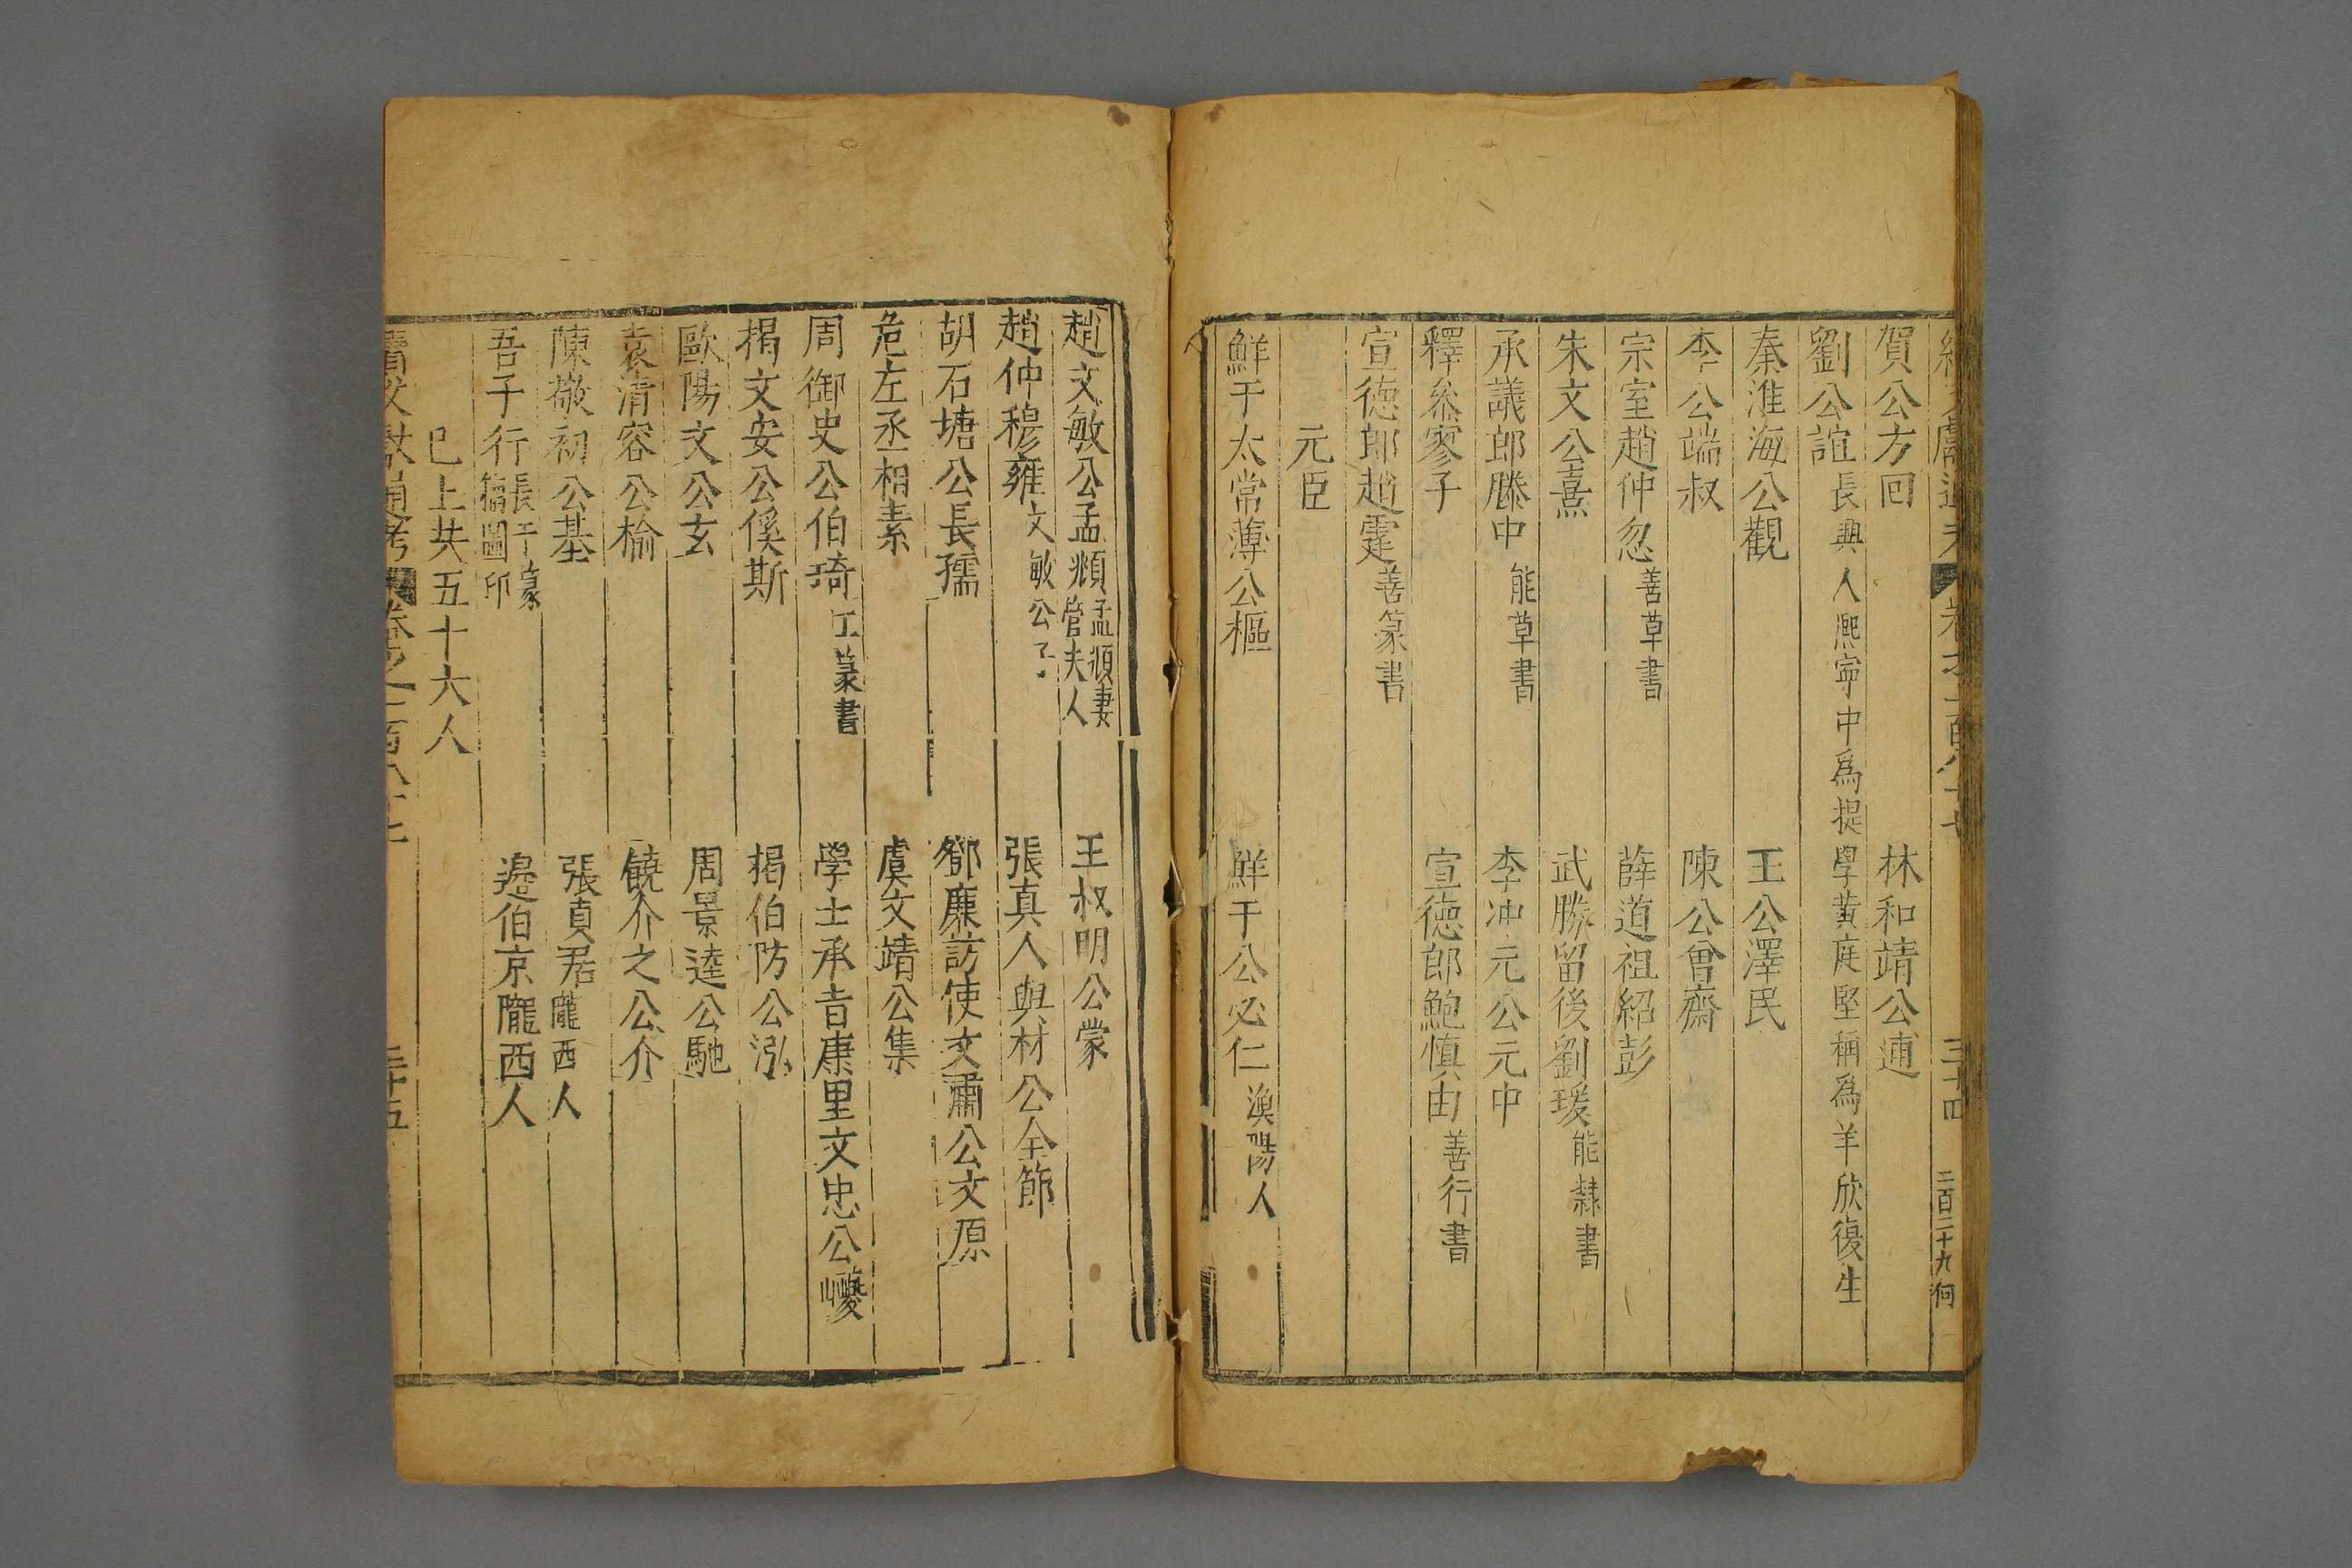 賀公方回　林和靖公逋
劉公誼長興人熈寧中爲提學黄庭堅稱爲羊欣復生
秦淮海公觀　王公澤民
李公端叔　陳公曾齋
宗室趙仲忽善草書　薛道祖紹彭
朱文公熹　武勝留後劉瑗能隸書
承議郎滕中能草書　李冲元公元中
釋叅寥子　宣德郎鮑慎由善行書
宣德郎趙霆善篆書
元臣
鮮于太常薄公樞　鮮于公必仁漁陽人
趙文敏公孟頫孟頫妻管夫人　王叔明公蒙
趙仲穆雍文敏公子　張真人與材公全節
胡石塘公長孺　鄧廉訪使文肅公文原
危左丞相素　虞文靖公集
周御史公伯琦工篆書　學士承旨康里文忠公巙
揭文安公傒斯　揭伯防公泓
歐陽文公玄　周景逵公馳
袁清容公桷　饒介之公介
陳敬初公基　張貞居隴西人
吾子行長于篆籀圖印　邉伯京隴西人
已上共五十六人
續文獻通考　卷之一百八十七　三十五
三十四　二百二十九何